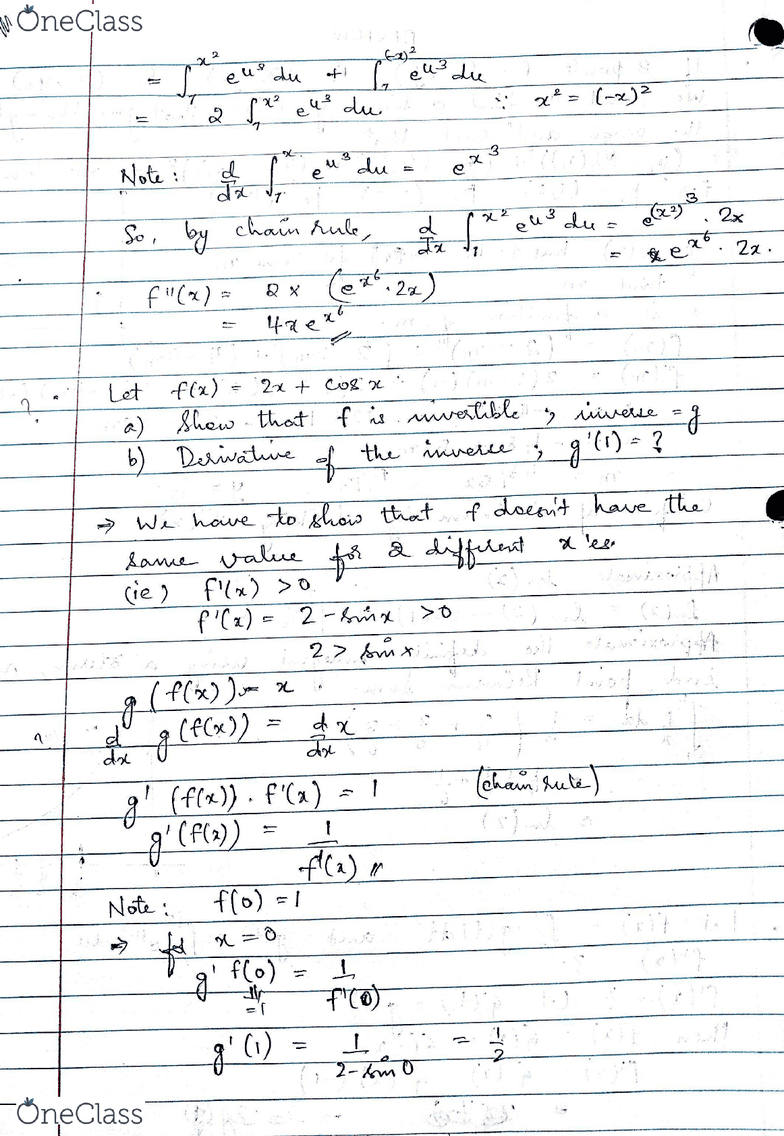 OneClass
= ∫₇^{x²} e^{u³} du + ∫₇^{(-x)²} e^{u³} du
= 2 ∫₇^{x²} e^{u³} du ∵ x² = (-x)²
Note: d/dx ∫₇^{x} e^{u³} du = e^{x³}
So, by chain rule, d/dx ∫₇^{x²} e^{u³} du = e^{(x²)³} · 2x
= e^{x⁶} · 2x.
f''(x) = 2 × (e^{x⁶} · 2x)
= 4x e^{x⁶}
? Let f(x) = 2x + cos x
a) Show that f is invertible ; inverse = g
b) Derivative of the inverse ; g'(1) = ?
⇒ We have to show that f doesn't have the
same value for 2 different x'es.
(ie) f'(x) > 0
f'(x) = 2 - sin x > 0
2 > sin x
g (f(x)) = x
d/dx g (f(x)) = d/dx x
g' (f(x)) · f'(x) = 1 (chain rule)
g' (f(x)) = 1/f'(x)
Note: f(0) = 1
⇒ for x = 0
g' f(0) = 1/f'(0)
= 1
g'(1) = 1/(2 - sin 0) = 1/2
OneClass